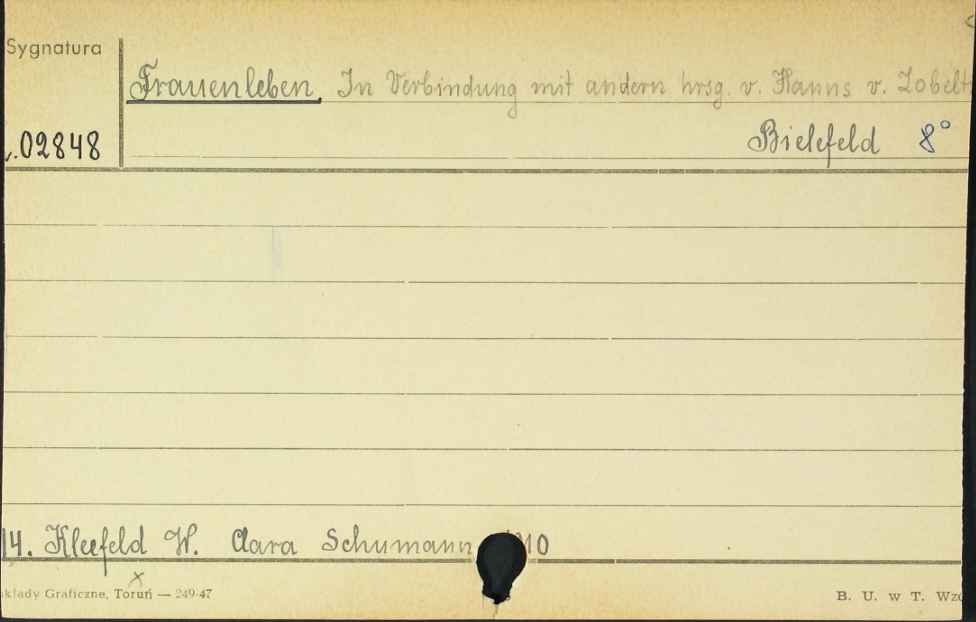 Sygnatura
Frauenleben. In Verbindung mit andern hrsg. v. Hanns v. Zobelt
02848
Bielefeld 8°
14. Kleefeld W. Clara Schumann 10
kłady Graficzne, Toruń — 249-47
B. U. w T. Wzó